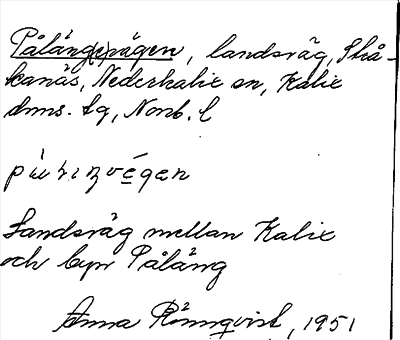 Påläng(s)vägen, landsväg, Strå-
kanäs, Nederkalix sn, Kalix
dms. tg, Norrb. l
Landsväg mellan Kalix
och byn Påläng
Anna Rönnqvist, 1951